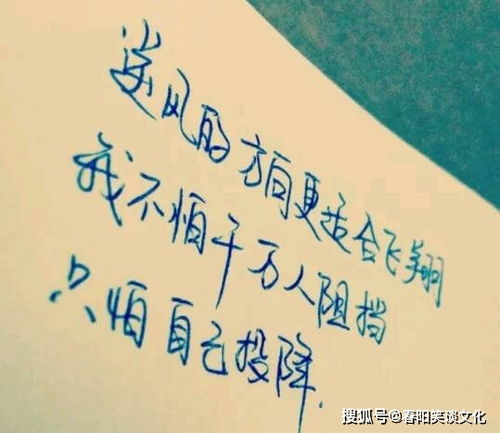 逆风的方向更适合飞翔
我不怕千万人阻挡
只怕自己投降.
搜狐号@春阳笑谈文化